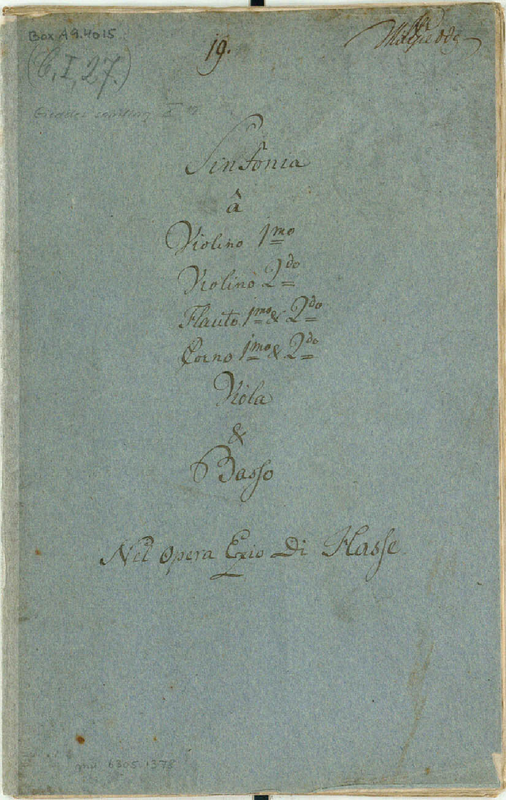 Box A9.4015
19.
(C, I, 27.)
Sinfonia
â
Violino 1mo
Violino 2do
Flauto 1mo & 2do
Corno 1mo & 2do
Viola
&
Basso
Nel opera Ezio Di Hasse
mu 6305.1378